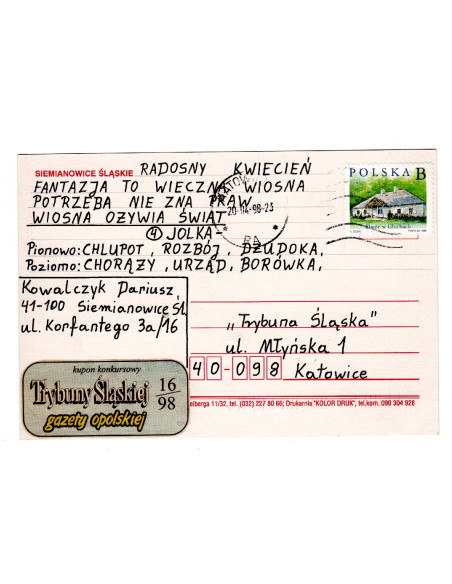 POLSKA B
SIEMIANOWICE ŚLĄSKIE RADOSNY KWIECIEŃ
FANTAZJA TO WIECZNA WIOSNA
POTRZEBA NIE ZNA PRAW
WIOSNA OŻYWIA ŚWIAT
20-04-98-23
4 JOLKA-
Pionowo: CHLUPOT, ROZBÓJ, DŻUDOKA,
Poziomo: CHORĄŻY, URZĄD, BORÓWKA,
Kowalczyk Dariusz,
41-100 Siemianowice Śl.
ul. Korfantego 3a/16
„Trybuna Śląska"
ul. Młyńska 1
40-098
Katowice
kupon konkursowy
Trybuny Śląskiej
gazety opolskiej
16
98
elberga 11/32, tel. (032) 227 80 66; Drukarnia "KOLOR DRUK", tel.kom. 090 304 926